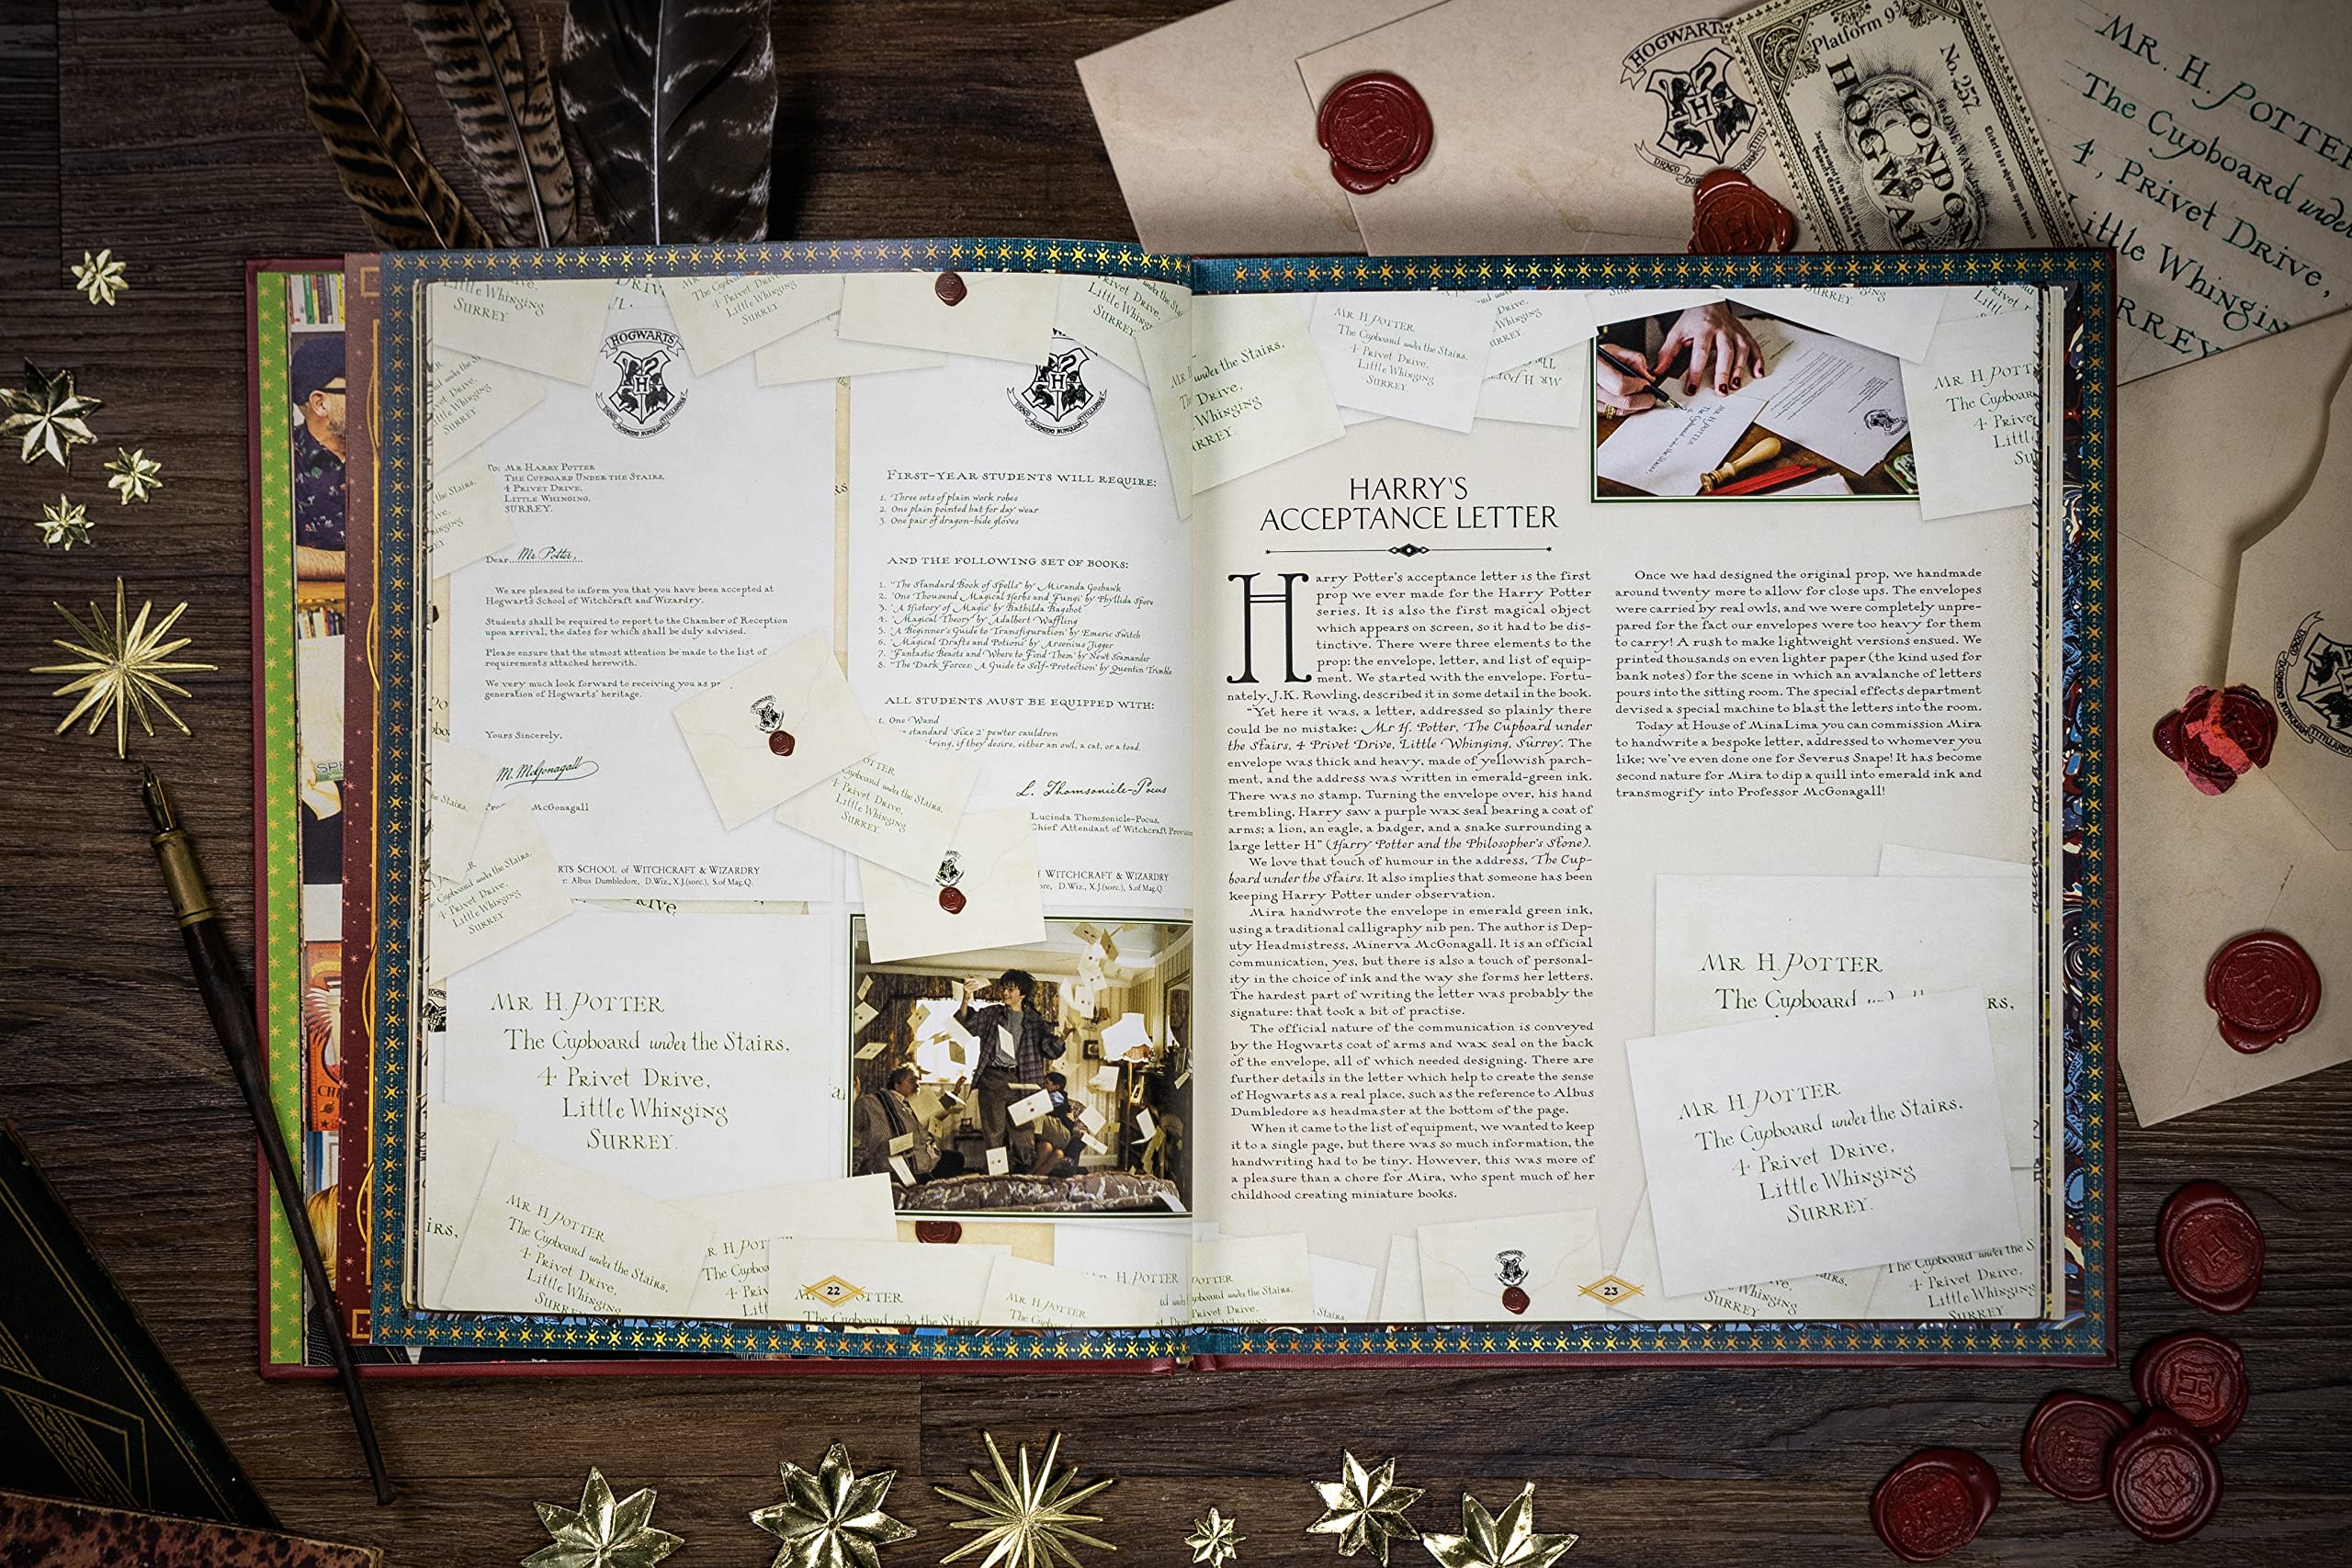 HOGWARTS
Platform 9¾
No. 257
LONDON
to
HOGWAR
MR. H. POTTER
The Cupboard under
4, Privet Drive,
Little Whinging
SURREY
HOGWARTS
To: Mr Harry Potter
The Cupboard Under the Stairs,
4 Privet Drive,
Little Whinging,
Surrey.
Dear Mr Potter,
We are pleased to inform you that you have been accepted at
Hogwarts School of Witchcraft and Wizardry.
Students shall be required to report to the Chamber of Reception
upon arrival, the dates for which shall be duly advised.
Please ensure that the utmost attention be made to the list of
requirements attached herewith.
We very much look forward to receiving you as
generation of Hogwarts' heritage.
Yours Sincerely,
M. McGonagall
McGonagall
RTS SCHOOL of WITCHCRAFT & WIZARDRY
r: Albus Dumbledore, D.Wiz., X.J.(sorc.), S.of Mag.Q.
FIRST-YEAR STUDENTS WILL REQUIRE:
1. Three sets of plain work robes
2. One plain pointed hat for day wear
3. One pair of dragon-hide gloves
AND THE FOLLOWING SET OF BOOKS:
1. "The Standard Book of Spells" by Miranda Goshawk
2. "One Thousand Magical Herbs and Fungi" by Phyllida Spore
3. "A History of Magic" by Bathilda Bagshot
4. "Magical Theory" by Adalbert Waffling
5. "A Beginner's Guide to Transfiguration" by Emeric Switch
6. "Magical Drafts and Potions" by Arsenius Jigger
7. "Fantastic Beasts and Where to Find Them" by Newt Scamander
8. "The Dark Forces: A Guide to Self-Protection" by Quentin Trimble
ALL STUDENTS MUST BE EQUIPPED WITH:
1. One Wand
standard 'Size 2' pewter cauldron
bring, if they desire, either an owl, a cat, or a toad.
L. Thomsonicle-Pocus
Lucinda Thomsonicle-Pocus,
Chief Attendant of Witchcraft Provision
f WITCHCRAFT & WIZARDRY
ore, D.Wiz., X.J.(sorc.), S.of Mag.Q.
MR H. POTTER
The Cupboard under the Stairs,
4 Privet Drive,
Little Whinging
SURREY.
MR H. POTTER
The Cupboard under the Stairs,
4 Privet Drive,
Little Whinging
22
MR H. POTTER
The Cupboard under the Stairs,
4 Privet Drive,
Whinging
SURREY.
HARRY'S
ACCEPTANCE LETTER
Harry Potter's acceptance letter is the first
prop we ever made for the Harry Potter
series. It is also the first magical object
which appears on screen, so it had to be dis-
tinctive. There were three elements to the
prop: the envelope, letter, and list of equip-
ment. We started with the envelope. Fortu-
nately, J.K. Rowling, described it in some detail in the book.
"Yet here it was, a letter, addressed so plainly there
could be no mistake: Mr H. Potter, The Cupboard under
the Stairs, 4 Privet Drive, Little Whinging, Surrey. The
envelope was thick and heavy, made of yellowish parch-
ment, and the address was written in emerald-green ink.
There was no stamp. Turning the envelope over, his hand
trembling, Harry saw a purple wax seal bearing a coat of
arms; a lion, an eagle, a badger, and a snake surrounding a
large letter H" (Harry Potter and the Philosopher's Stone).
We love that touch of humour in the address, The Cup-
board under the Stairs. It also implies that someone has been
keeping Harry Potter under observation.
Mira handwrote the envelope in emerald green ink,
using a traditional calligraphy nib pen. The author is Dep-
uty Headmistress, Minerva McGonagall. It is an official
communication, yes, but there is also a touch of personal-
ity in the choice of ink and the way she forms her letters.
The hardest part of writing the letter was probably the
signature: that took a bit of practise.
The official nature of the communication is conveyed
by the Hogwarts coat of arms and wax seal on the back
of the envelope, all of which needed designing. There are
further details in the letter which help to create the sense
of Hogwarts as a real place, such as the reference to Albus
Dumbledore as headmaster at the bottom of the page.
When it came to the list of equipment, we wanted to keep
it to a single page, but there was so much information, the
handwriting had to be tiny. However, this was more of
a pleasure than a chore for Mira, who spent much of her
childhood creating miniature books.
Once we had designed the original prop, we handmade
around twenty more to allow for close ups. The envelopes
were carried by real owls, and we were completely unpre-
pared for the fact our envelopes were too heavy for them
to carry! A rush to make lightweight versions ensued. We
printed thousands on even lighter paper (the kind used for
bank notes) for the scene in which an avalanche of letters
pours into the sitting room. The special effects department
devised a special machine to blast the letters into the room.
Today at House of MinaLima you can commission Mira
to handwrite a bespoke letter, addressed to whomever you
like; we've even done one for Severus Snape! It has become
second nature for Mira to dip a quill into emerald ink and
transmogrify into Professor McGonagall!
MR H. POTTER
The Cupboard
MR H. POTTER
The Cupboard under the Stairs,
4 Privet Drive,
Little Whinging
SURREY.
23